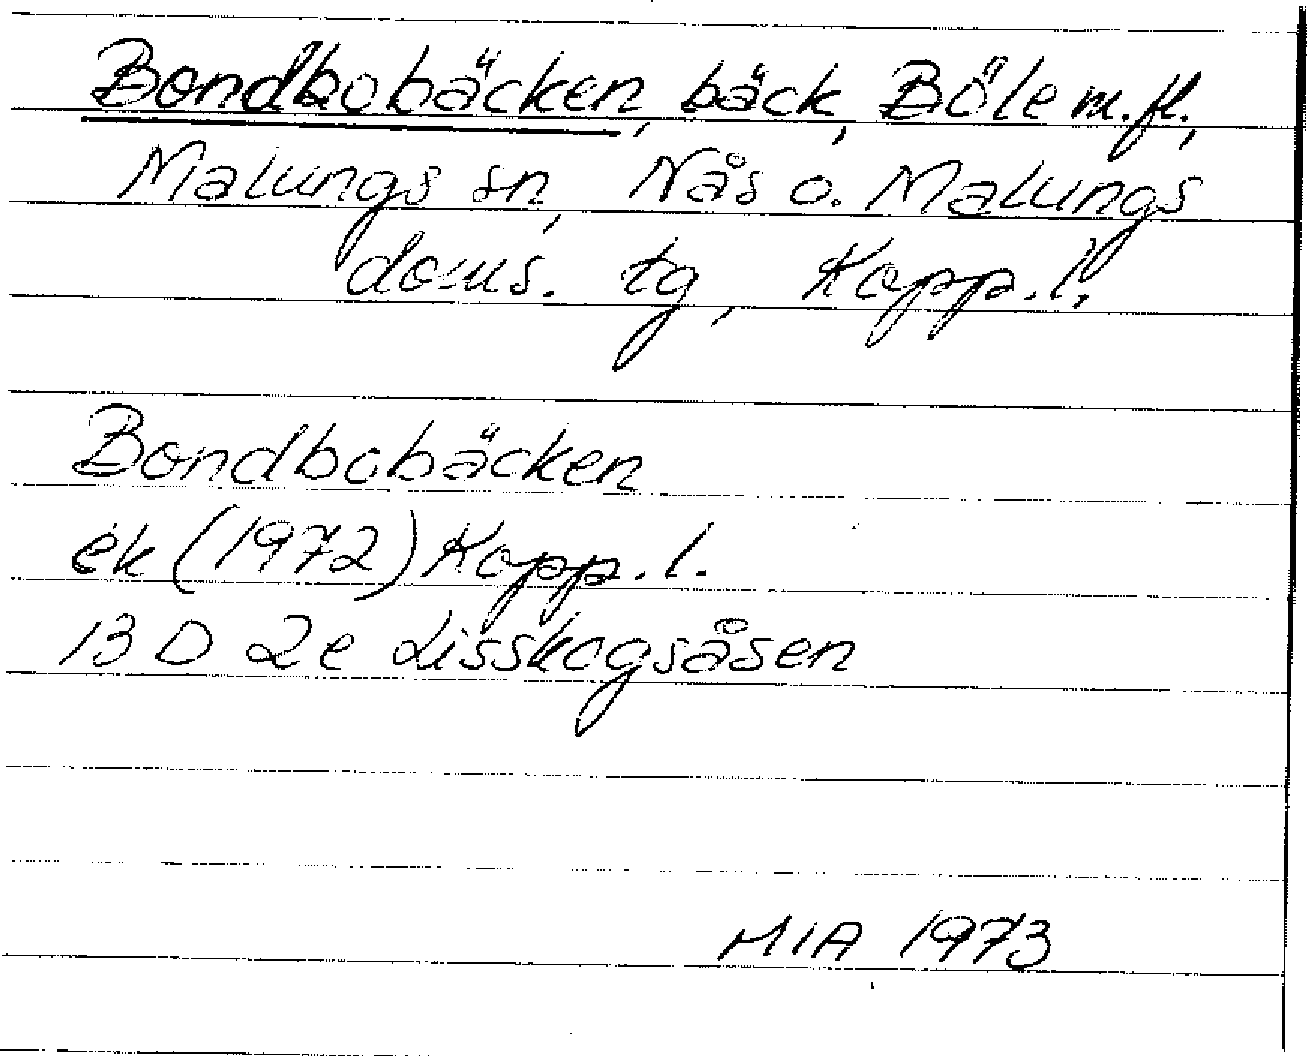 Bondbobäcken, bäck, Böle m.fl.,
Malungs sn, Nås o. Malungs
doms. tg, Kopp.l.
Bondbobäcken
ek (1972) Kopp.l.
13 D 2e Lisskogsåsen
MIA 1973